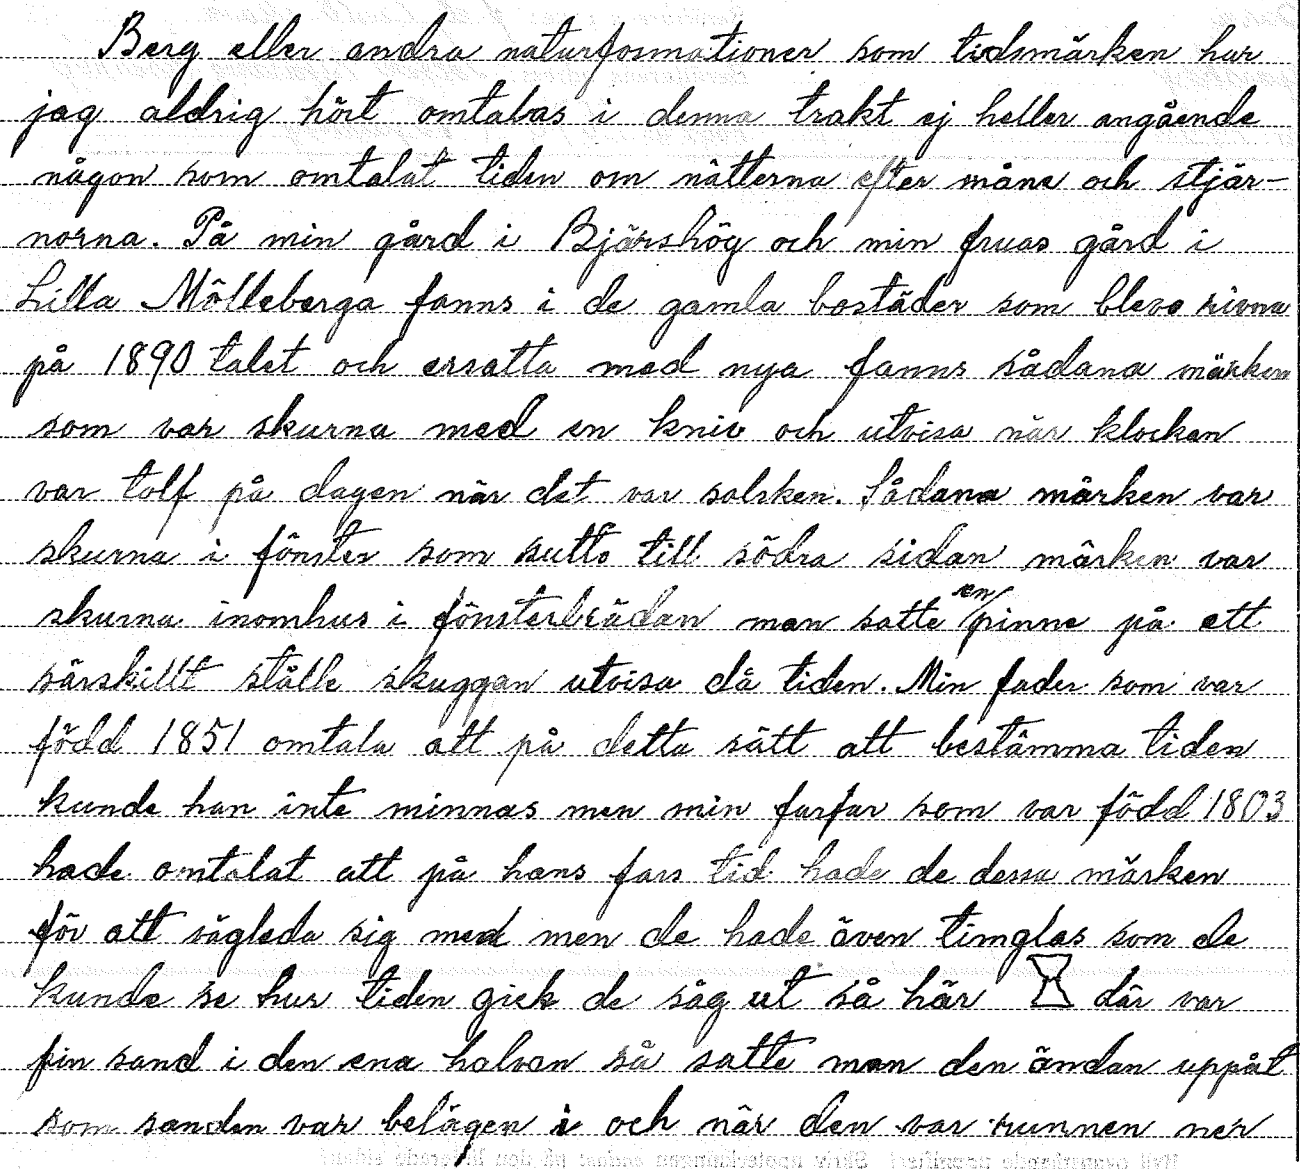 Berg eller andra naturformationer som tidsmärken har
jag aldrig hört omtalas i denna trakt ej heller angående
någon som omtalat tiden om nätterna efter måne och stjär-
norna. På min gård i Bjärshög och min fruas gård i
Lilla Mölleberga fanns i de gamla bostäder som blevo rivna
på 1890 talet och ersatta med nya fanns sådana märken
som var skurna med en kniv och utvisa när klockan
var tolf på dagen när det var solsken. Sådana märken var
skurna i fönster som sutto till södra sidan märken var
skurna inomhus i fönsterbrädan man satte en pinne på ett
särskillt ställe skuggan utvisa då tiden. Min fader som var
född 1851 omtala att på detta sätt att bestämma tiden
kunde han inte minnas men min farfar som var född 1803
hade omtalat att på hans fars tid hade de dessa märken
för att vägleda sig med men de hade även timglas som de
kunde se hur tiden gick de såg ut så här där var
fin sand i den ena halvan så satte man den ändan uppåt
som sanden var belägen i och när den var runnen ner